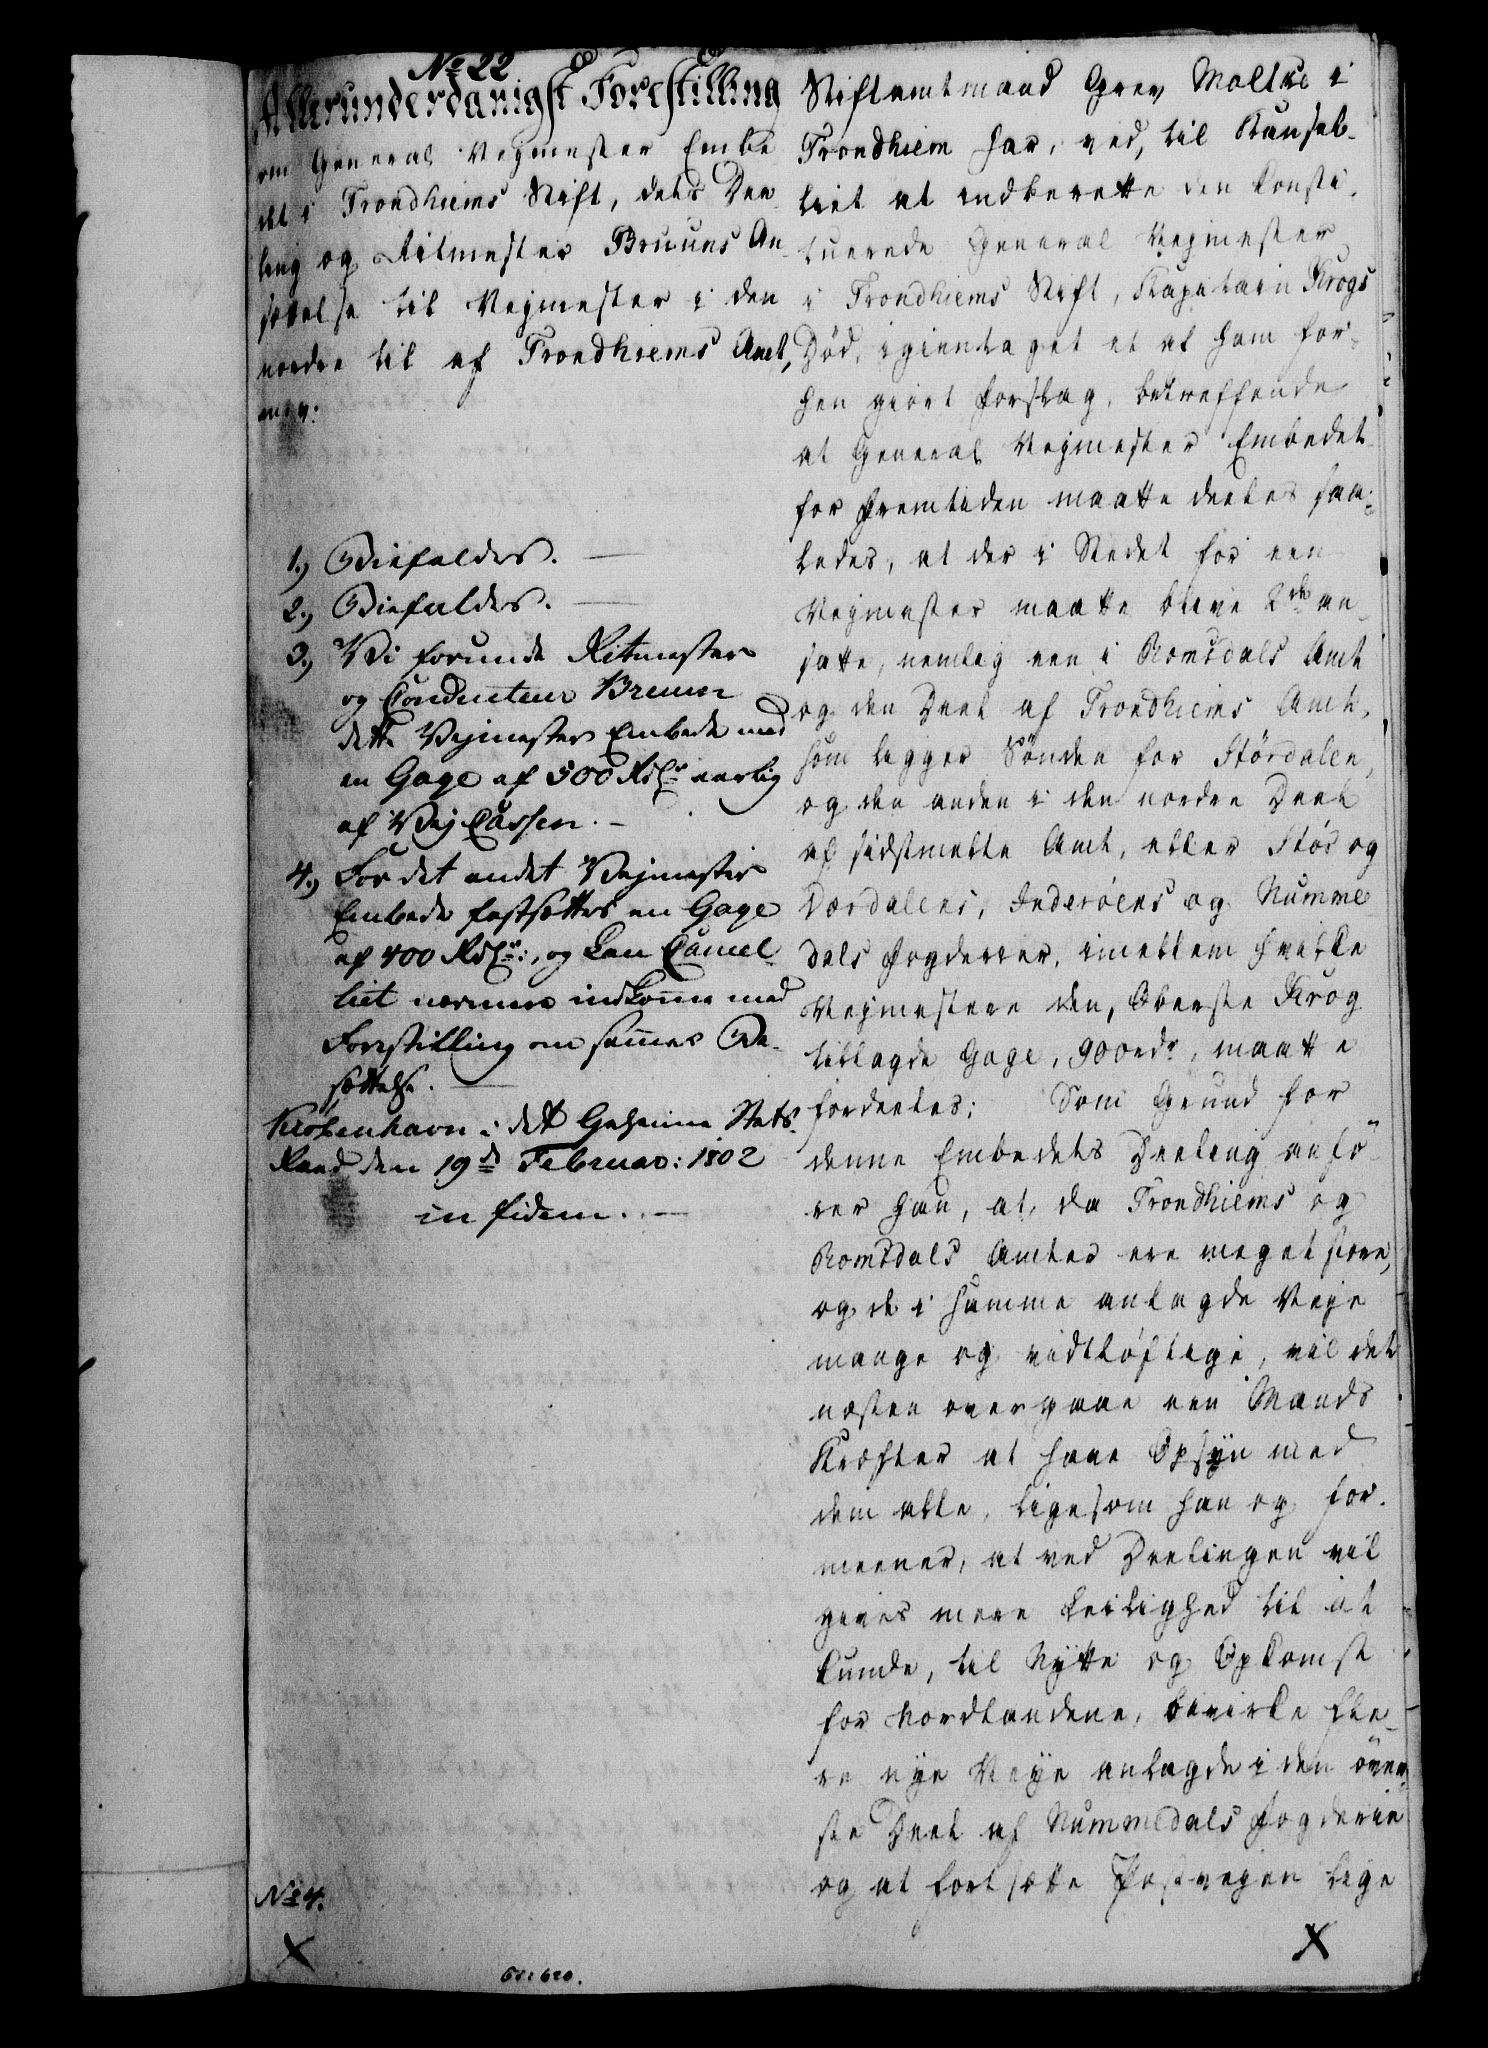 No 22
Allerunderdanigst Forestilling
om General Vejmester Embe
det i Trondhiems Stift, dets Dee
ling og Ritmester Bruuns An
sættelse til Vejmester i den
nordre til af Trondhiems Amt,
m: v:
1.) Biefaldes.
2.) Biefaldes.
3.) Vi forunde Ritmester
og Conducteur Bruun
dette Vejmester Embede med
en Gage af 500 Rdlr aarlig
af Vej Cassen. –
4.) For det andet Vejmester
Embede fastsættes en Gage
af 400 Rdlr:, og kan Cancel
liet nærmere indkomme med
Forestilling om sammes Be-
sættelse.
Kiøbenhavn i det Geheime Stats-
Raad den 19de Februar: 1802
in fidem. –
Stiftamtmand Grev Moltke i
Trondhiem har, ved, til Kansel-
liet at indberette den Consti-
tuerede General Vejmester
i Trondhiems Stift, Kapitain Krogs
Død, igientaget et af ham for-
hen giort Forslag, betreffende
at General Vejmester Embedet
for Fremtiden maatte deeles saa-
ledes, at der i Stedet for een
Vejmester maatte blive 2de an-
satte, nemlig een i Romsdals Amt
og den Deel af Trondhiems Amt,
som ligger Sønden for Størdalen,
og den anden i den nordre Deel
af sidstmelte Amt, eller Stør og
Værdalens, Inderøens og Numme
dals Fogderier, imellem hvilke
Vejmestere den, Oberste Krog
tillagde Gage, 900 rdr, maatte
fordeeles; Som Grund for
denne Embedets Deeling anfø-
rer han, at, da Trondhiems og
Romsdals Amter ere meget store,
og de i samme anlagde Veje
mange og vidtløftige, vil det
næsten overgaae een Mands
Kræfter at have Opsyn med
dem alle, ligesom han og for-
meener, at ved Deelingen vil
gives mere Leilighed til at
kunde, til Nytte og Opkomst
for Nordlandene, bevirke fle-
re nye Veye anlagde i den øver-
ste Deel af Nummedals Fogderie
og at fortsætte Postvejen lige
No 4.
X
X